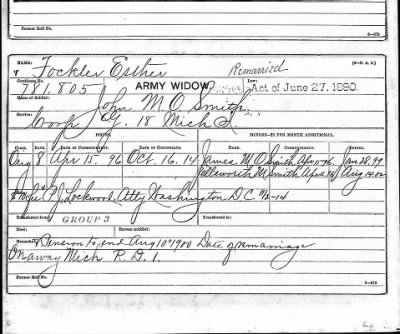 Former Roll No.
6—273
NAME:
Fockler Esther
Remarried
(3—3. A. 5.)
Certificate No.
781.805
ARMY WIDOW
Act of June 27, 1890.
Name of Soldier:
John M. O. Smith
Service:
Corp G. 18 Mich I.
ISSUE
MINORS—$2 PER MONTH ADDITIONAL
RATE.
Aug 8 Apr 15. 96 Oct. 16. 14 James M O Smith Apr 15-96 Jan 28.99
Ellsworth M Smith Apr 15-96 Aug 14.02
P. J. Lockwood, Atty Washington D C
Transferred from
GROUP 3
Transferred to
Died:
Bureau notified:
Remarks:
Pension to end Aug 10" 1900 Date of remarriage
Onaway Mich R. D. 1.
Former Roll No.